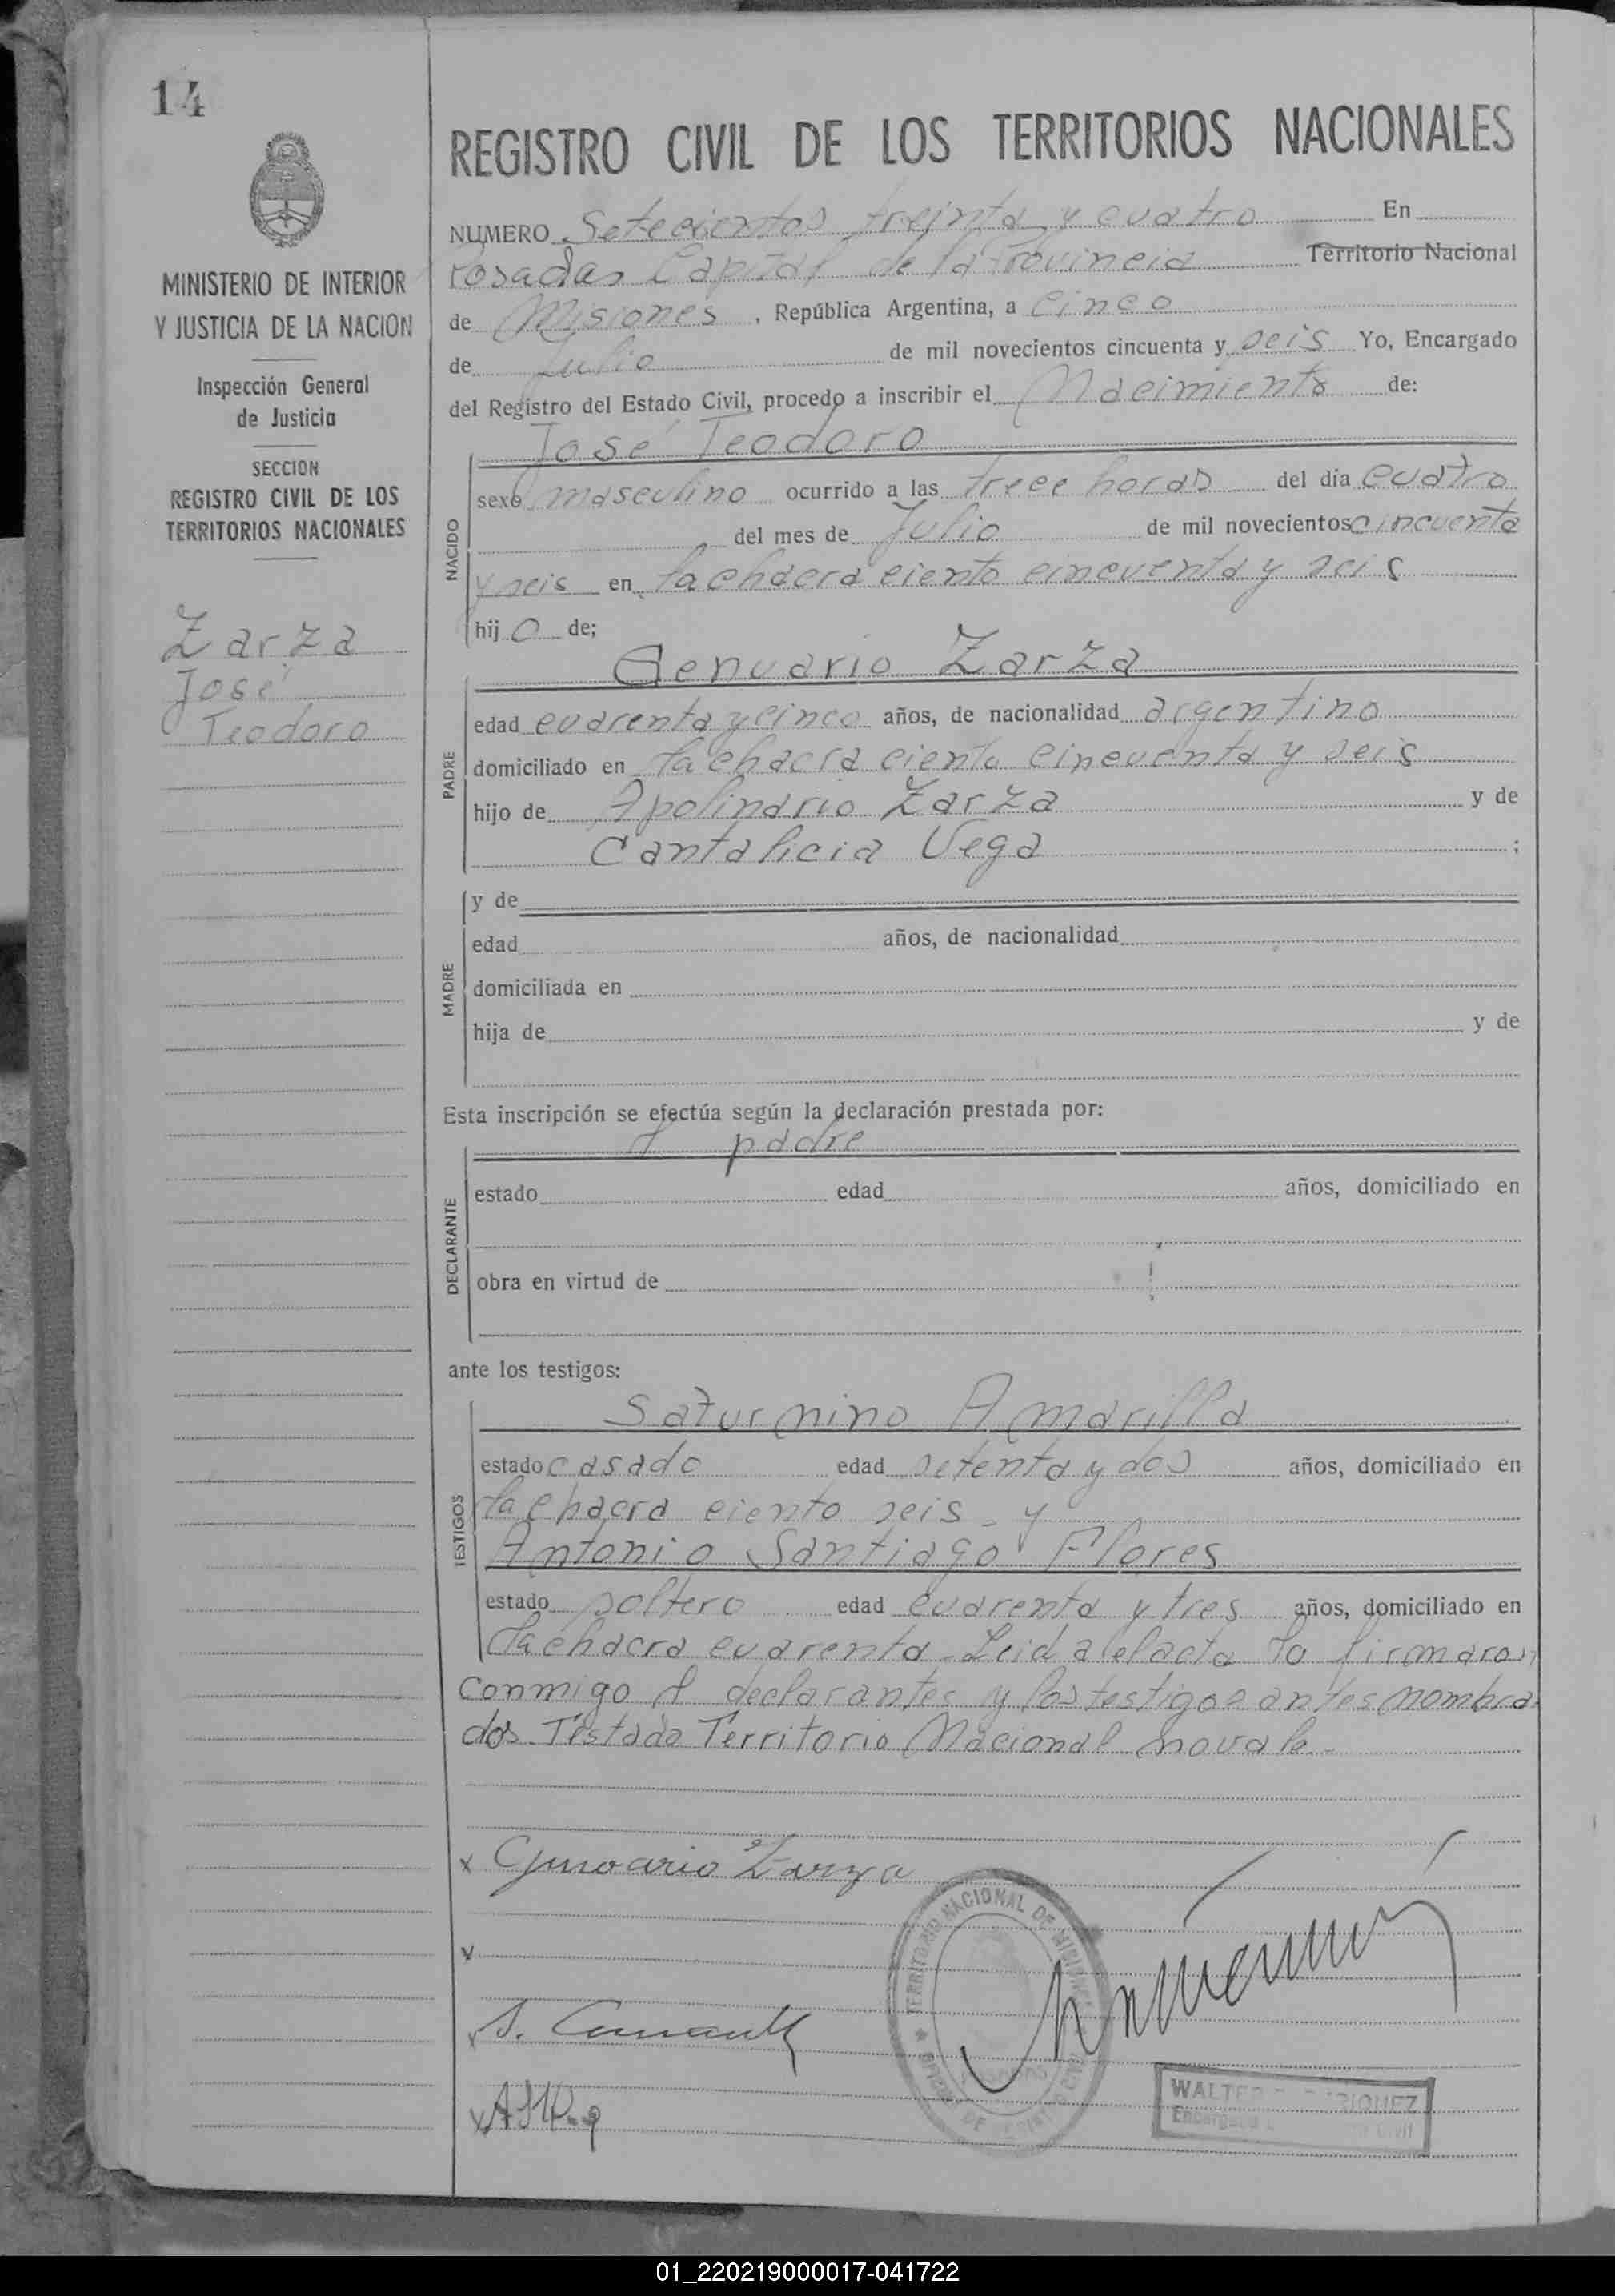 14
REGISTRO CIVIL DE LOS TERRITORIOS NACIONALES
MINISTERIO DE INTERIOR
Y JUSTICIA DE LA NACION
Inspección General
de Justicia
SECCION
REGISTRO CIVIL DE LOS
TERRITORIOS NACIONALES
Zarza
José
Teodoro
NUMERO Setecientos treinta y cuatro En
Posadas Capital de la Provincia Territorio Nacional
de Misiones, República Argentina, a cinco
de Julio de mil novecientos cincuenta y seis Yo, Encargado
del Registro del Estado Civil, procedo a inscribir el Nacimiento de:
José Teodoro
NACIDO
sexo masculino ocurrido a las trece horas del día cuatro
del mes de Julio de mil novecientos cincuenta
y seis en la chacra ciento cincuenta y seis
hijo de;
Genuario Zarza
PADRE
edad cuarenta y cinco años, de nacionalidad argentino
domiciliado en la chacra ciento cincuenta y seis
hijo de Apolinario Zarza y de
Cantalicia Vega ;
MADRE
y de
edad años, de nacionalidad
domiciliada en
hija de y de
Esta inscripción se efectúa según la declaración prestada por:
el padre
DECLARANTE
estado edad años, domiciliado en
obra en virtud de
ante los testigos:
Saturnino Amarilla
TESTIGOS
estado casado edad setenta y dos años, domiciliado en
la chacra ciento seis - y
Antonio Santiago Flores
estado soltero edad cuarenta y tres años, domiciliado en
la chacra cuarenta - Leida el acta la firmaron
conmigo el declarantes y los testigos antes nombra
dos - Testado Territorio Nacional no vale -
x Genuario Zarza
x
x S.
x
TERRITORIO NACIONAL DE MISIONES
WALTER RIQUEZ
Encargado Civil
01_220219000017-041722